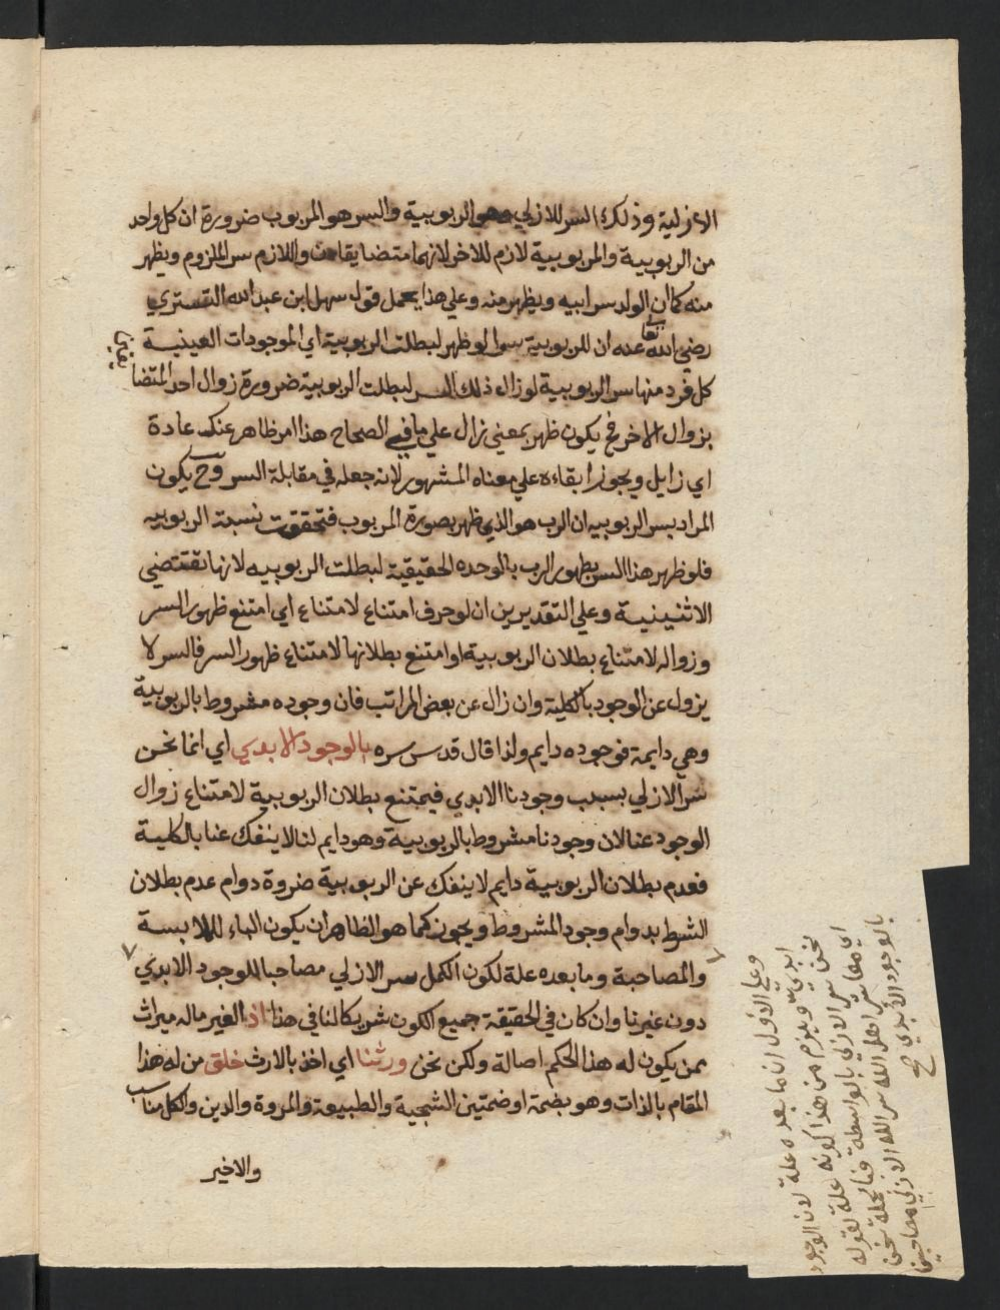 الازلية وذلك السر للازلي وهو الربوبية والسر هو المربوب ضرورة ان كل واحد
من الربوبية والمربوبية لازم للاخر لانهما متضايفان واللازم سر الملزوم ويظهر
منه كما ان الولد سر ابيه ويظهر منه وعلي هذا يحمل قول سهل ابن عبد الله التستري
رضي الله تعالى عنه ان للربوبية سرا لو ظهر لبطلت الربوبية اي الموجودات العينية
كل فرد منها سر الربوبية لو زال ذلك السر لبطلت الربوبية ضرورة زوال احد المتضا
يفين
بزوال الاخر فح يكون ظهر بمعني زال علي ما في الصحاح هذا امر ظاهر عنك عادة
اي زايل ويجوز ابقاءه علي معناه المشهور لانه جعله في مقابلة السر وح يكون
المراد بسر الربوبيه ان الرب هو الذي ظهر بصورة المربوب فتحققت نسبة الربوبيه
فلو ظهر هذا السر بظهور الرب بالوحده الحقيقية لبطلت الربوبيه لانها تقتضي
الاثنينية وعلي التقديرين ان لو حرف امتناع لامتناع اي امتنع ظهور السر
وزواله لامتناع بطلان الربوبية او امتنع بطلانها لامتناع ظهور السر فالسر لا
يزول عن الوجود بالكلية وان زال عن بعض المراتب فان وجوده مشروط بالربوبية
وهي دايمة فوجوده دايم ولذا قال قدس سره بالوجود الابدي اي انما نحن
سر الازلي بسبب وجودنا الابدي فيمتنع بطلان الربوبية لامتناع زوال
الوجود عنا لان وجودنا مشروط بالربوبية وهو دايم لنا لا ينفك عنا بالكلية
فعدم بطلان الربوبية دايم لا ينفك عن الربوبية ضروة دوام عدم بطلان
الشرط بدوام وجود المشروط ويجوز كما هو الظاهر ان يكون الباء للملابسة
والمصاحبة وما بعده علة لكون الكمل سر الازلي مصاحبا للوجود الابدي
دون غيرنا وان كان في الحقيقة جميع الكون شريكا لنا في هذا اذ الغير ماله ميراث
ممن يكون له هذا الحكم اصالة ولكن نحن ورثنا اي اخذ بالارث خلق من له هذا
المقام بالذات وهو بضمة او ضمتين الشجية والطبيعة والمروة والدين والكل مناسب
والاخير
وعلي الاول ان ما بعده علة لان الوجود
ابدي ويلزم من هذا كونه علة لقوله
نحن سر الازلي بالواسطة فالجملة نحن
اي معاشر اهل الله سر الله الازلي مصاحبين
بالوجود الابدي صح